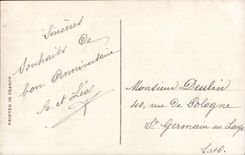 Sincères
Souhaits de
bon Anniversaire
A. et Léa
PRINTED IN FRANCE
Monsieur Deulin
40, rue de Pologne
St Germain en Laye
S.&O.